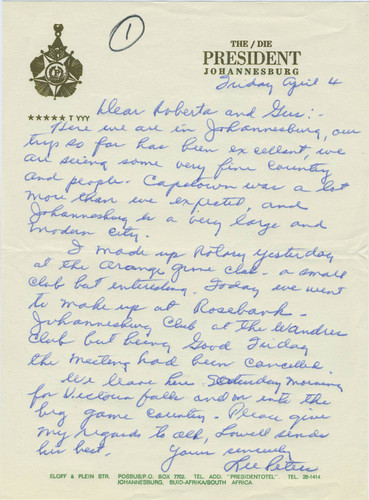 1
THE / DIE
PRESIDENT
JOHANNESBURG
Friday April 4
★★★★★ T YYY
Dear Roberta and Gus:-
Here we are in Johannesburg, our
trip so far has been excellent, we
are seeing some very fine country
and people. Capetown was a lot
more than we expected, and
Johannesburg is a very large and
modern city.
I made up Rotary yesterday
at the Orange grove club - a small
club but interesting. Today we went
to make up at Rosebank -
Johannesburg Club at the Wandres
Club but being Good Friday
the meeting had been cancelled.
We leave here Saturday morning
for Victoua falls and on into the
big game country. Please give
my regards to all, Lowell sends
his best.
Yours sincerely
Lee
ELOFF & PLEIN STR. POSBUS/P.O. BOX 7702. TEL. ADD. "PRESIDENTOTEL" TEL. 28-1414
JOHANNESBURG, SUID-AFRIKA/SOUTH AFRICA.